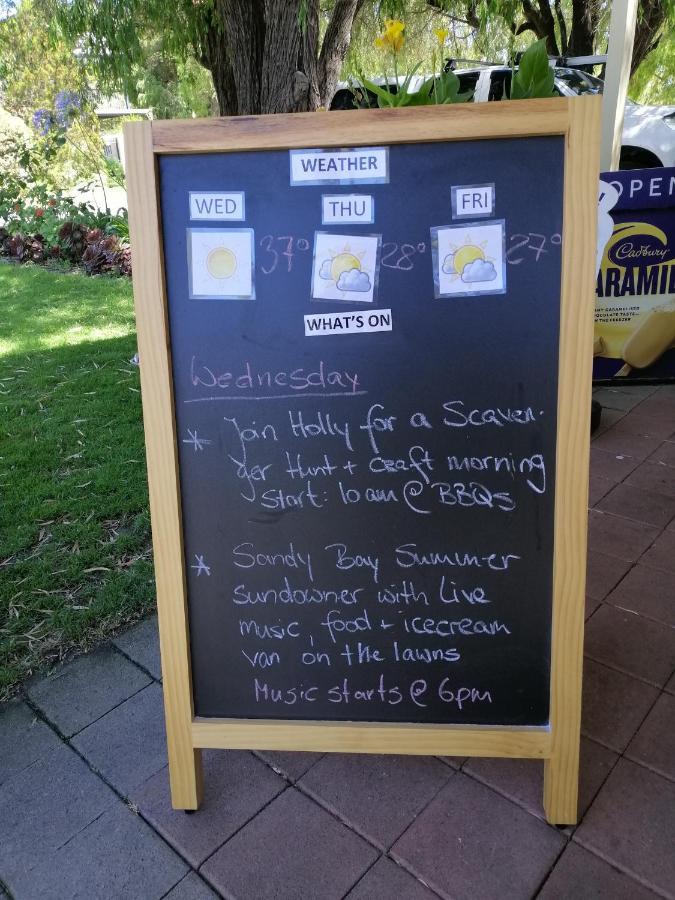 WEATHER
WED THU FRI
37° 28° 27°
WHAT'S ON
Wednesday
* Join Holly for a Scaven-
ger Hunt + craft morning
start: 10am @ BBQs
* Sandy Bay Summer
sundowner with Live
music, food + icecream
van on the lawns
Music starts @ 6pm
OPEN
Cadbury
ARAMIL